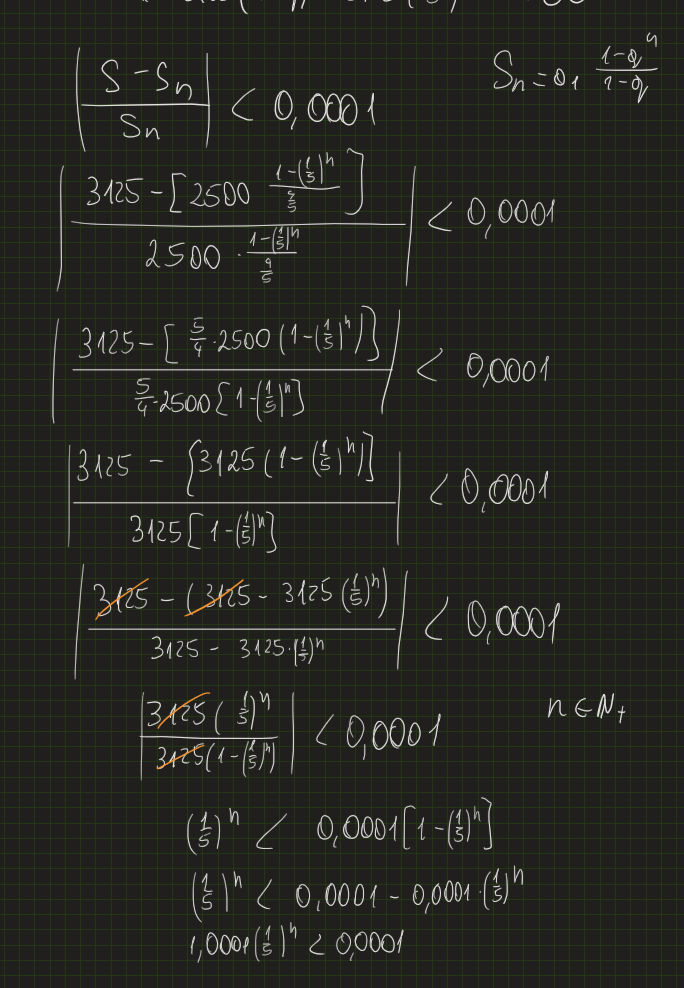 |(S - Sn)/Sn| < 0,0001
Sn = a₁ (1-q^n)/(1-q)
|(3125 - [2500 (1-(1/5)^n)/(4/5)])/(2500 · (1-(1/5)^n)/(4/5))| < 0,0001
|(3125 - [5/4 · 2500 (1-(1/5)^n)])/(5/4 · 2500 [1-(1/5)^n])| < 0,0001
|(3125 - [3125 (1-(1/5)^n)])/(3125 [1-(1/5)^n])| < 0,0001
|(3125 - (3125 - 3125 (1/5)^n))/(3125 - 3125 · (1/5)^n)| < 0,0001
|(3125 (1/5)^n)/(3125 (1-(1/5)^n))| < 0,0001
n ∈ N₊
(1/5)^n < 0,0001 [1-(1/5)^n]
(1/5)^n < 0,0001 - 0,0001 · (1/5)^n
1,0001 (1/5)^n < 0,0001